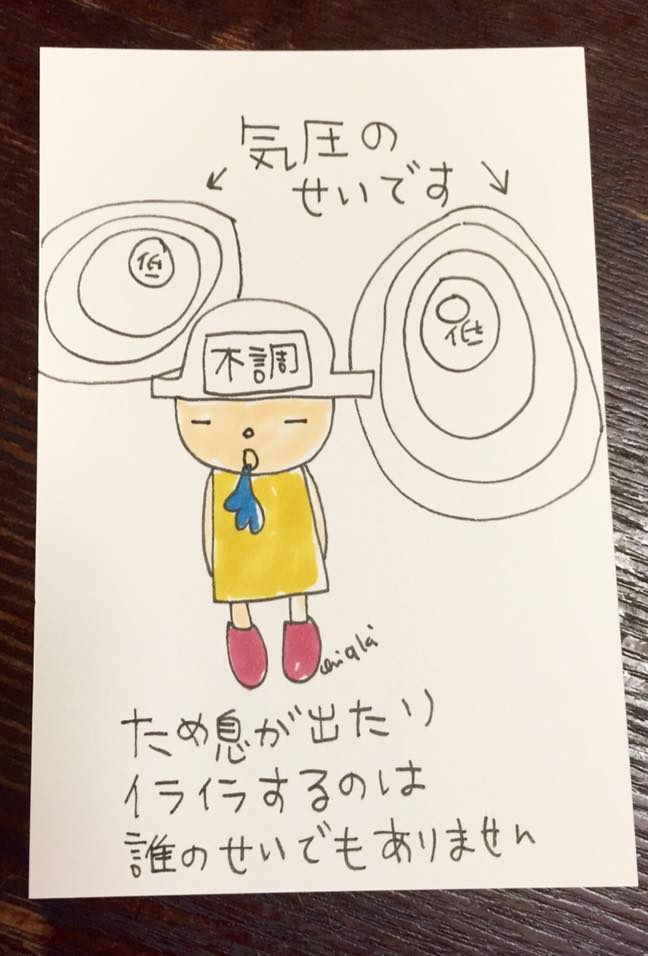 気圧の
せいです
低
低
不調
ため息が出たり
イライラするのは
誰のせいでもありません